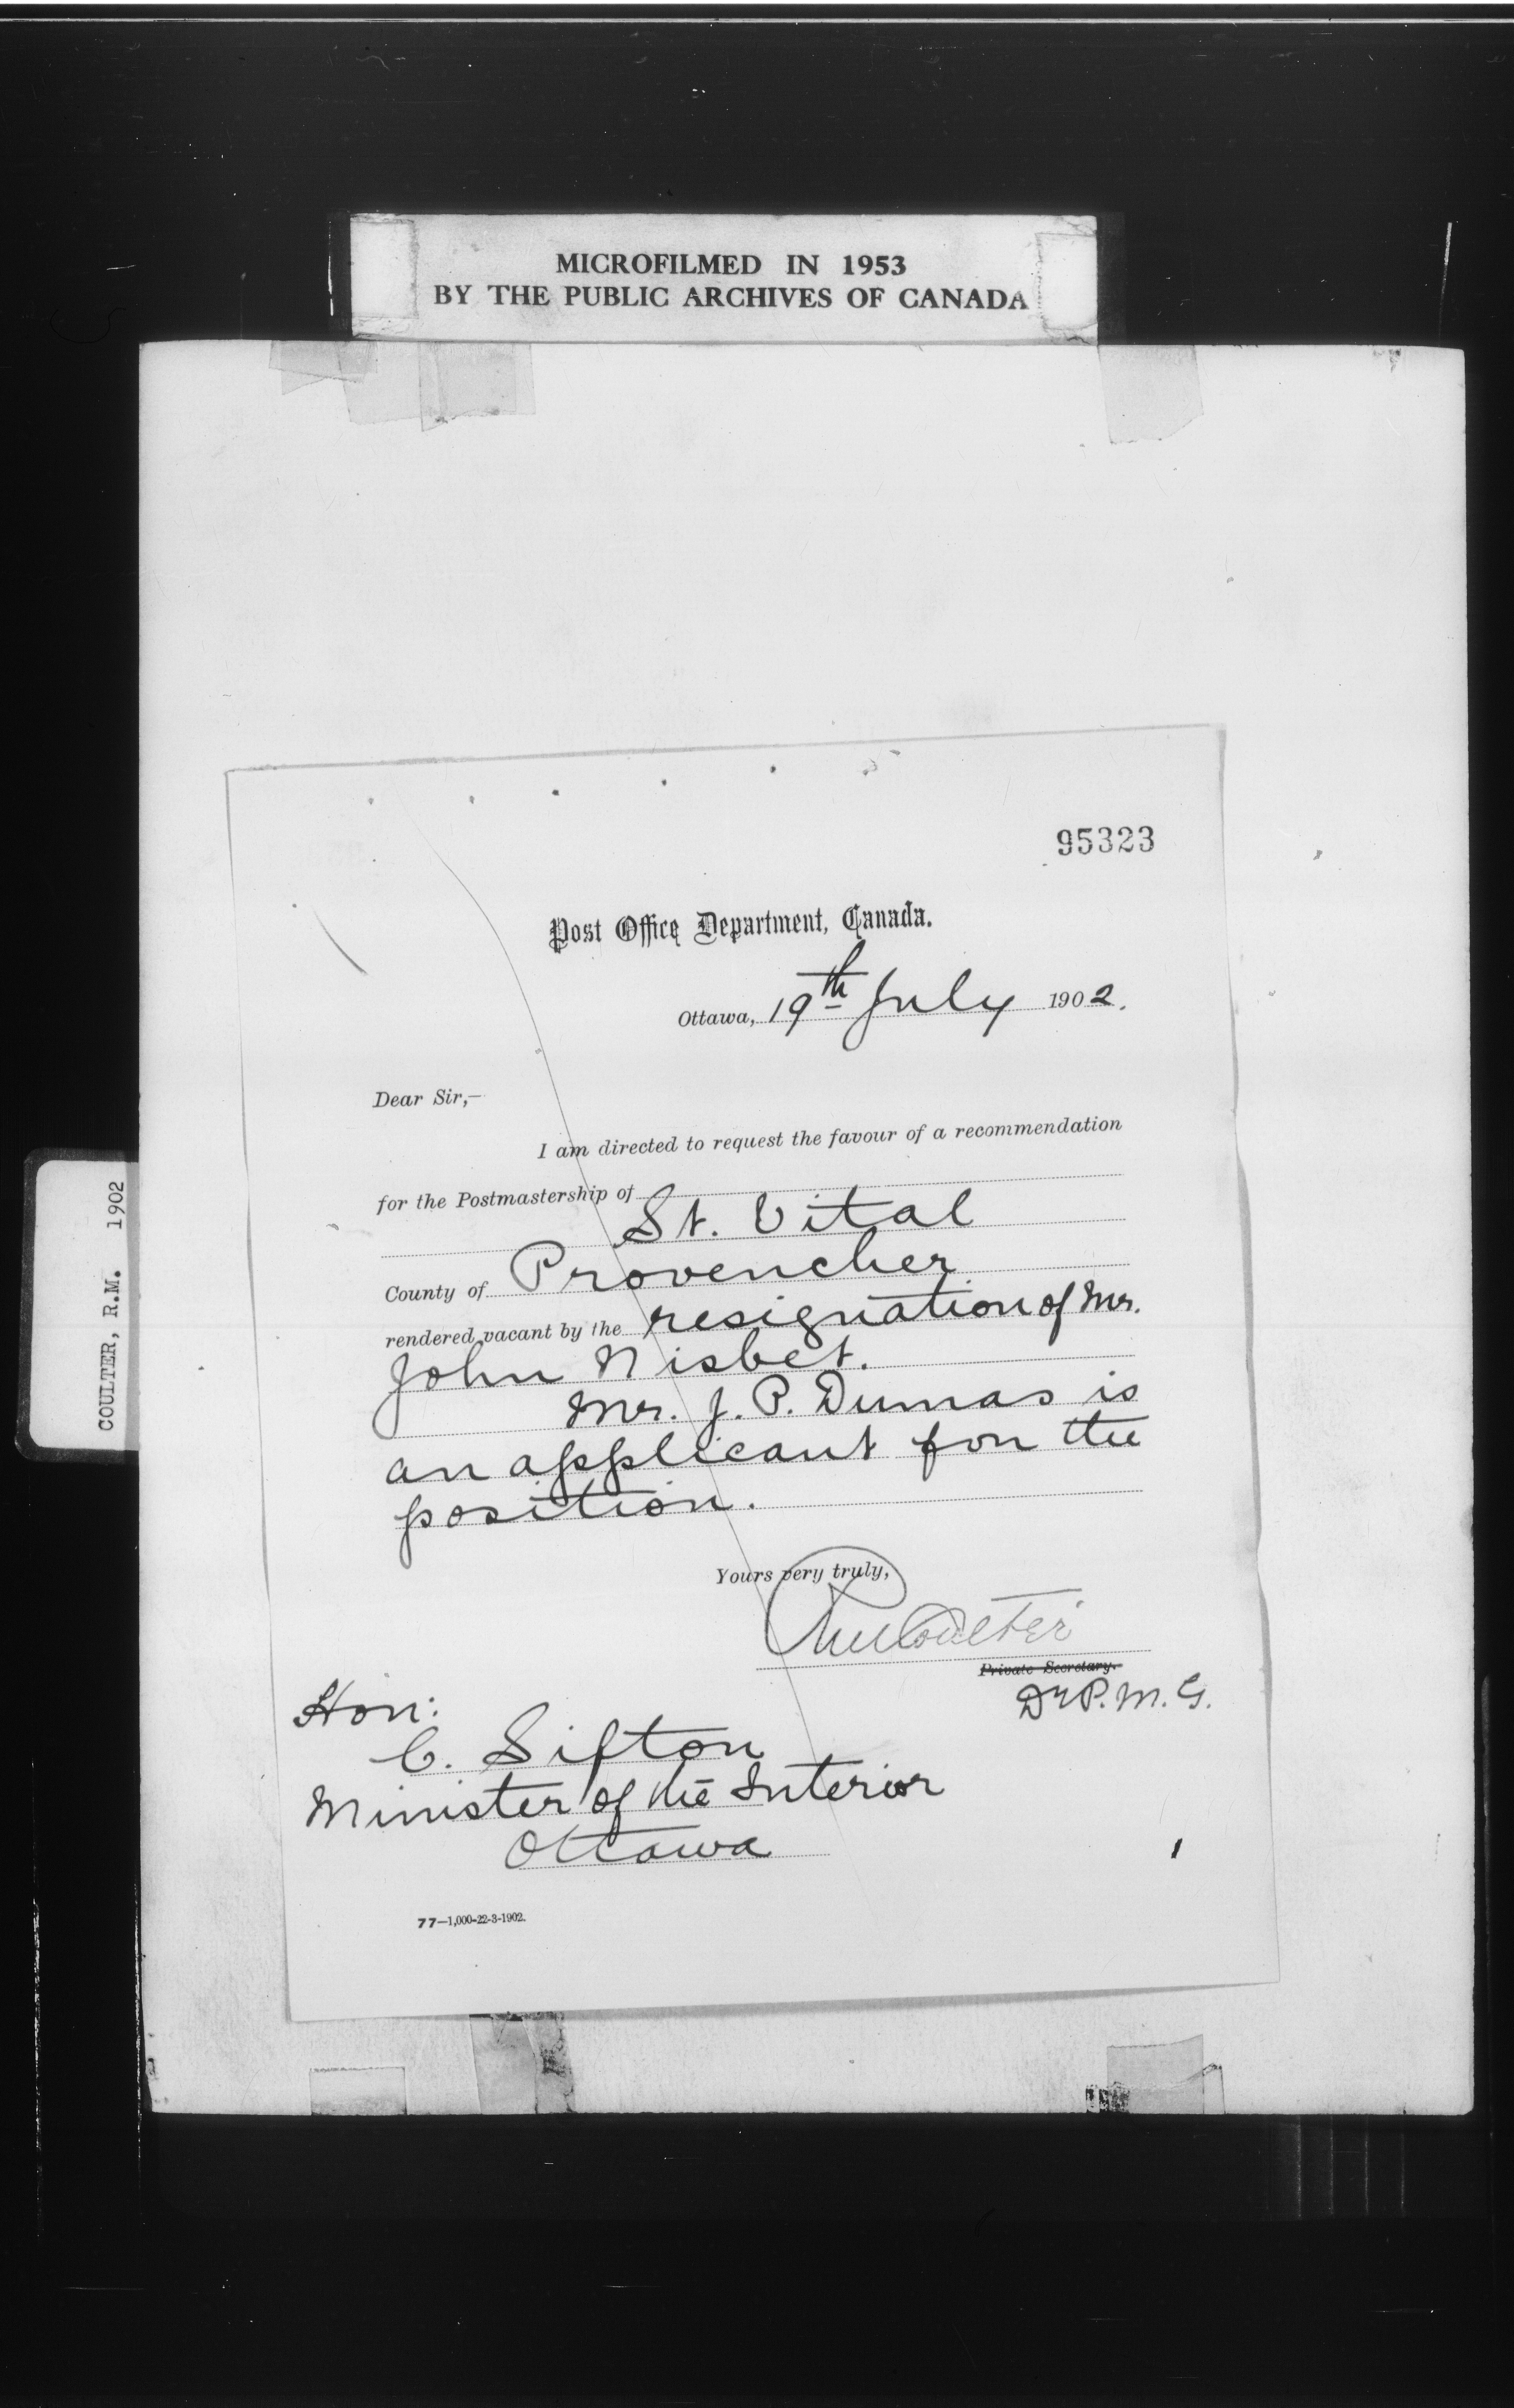 MICROFILMED IN 1953
BY THE PUBLIC ARCHIVES OF CANADA
COULTER, R.M. 1902
95323
Post Office Department, Canada.
Ottawa, 19th July 1902.
Dear Sir,—
I am directed to request the favour of a recommendation
for the Postmastership of
St. Vital
County of Provencher
rendered vacant by the resignation of Mr.
John Nisbet.
Mr. J. P. Dumas is
an applicant for the
position.
Yours very truly,
RMCoulter
Private Secretary.
Dy P. M. G.
Hon:
C. Sifton
Minister of the Interior
Ottawa
77—1,000-22-3-1902.